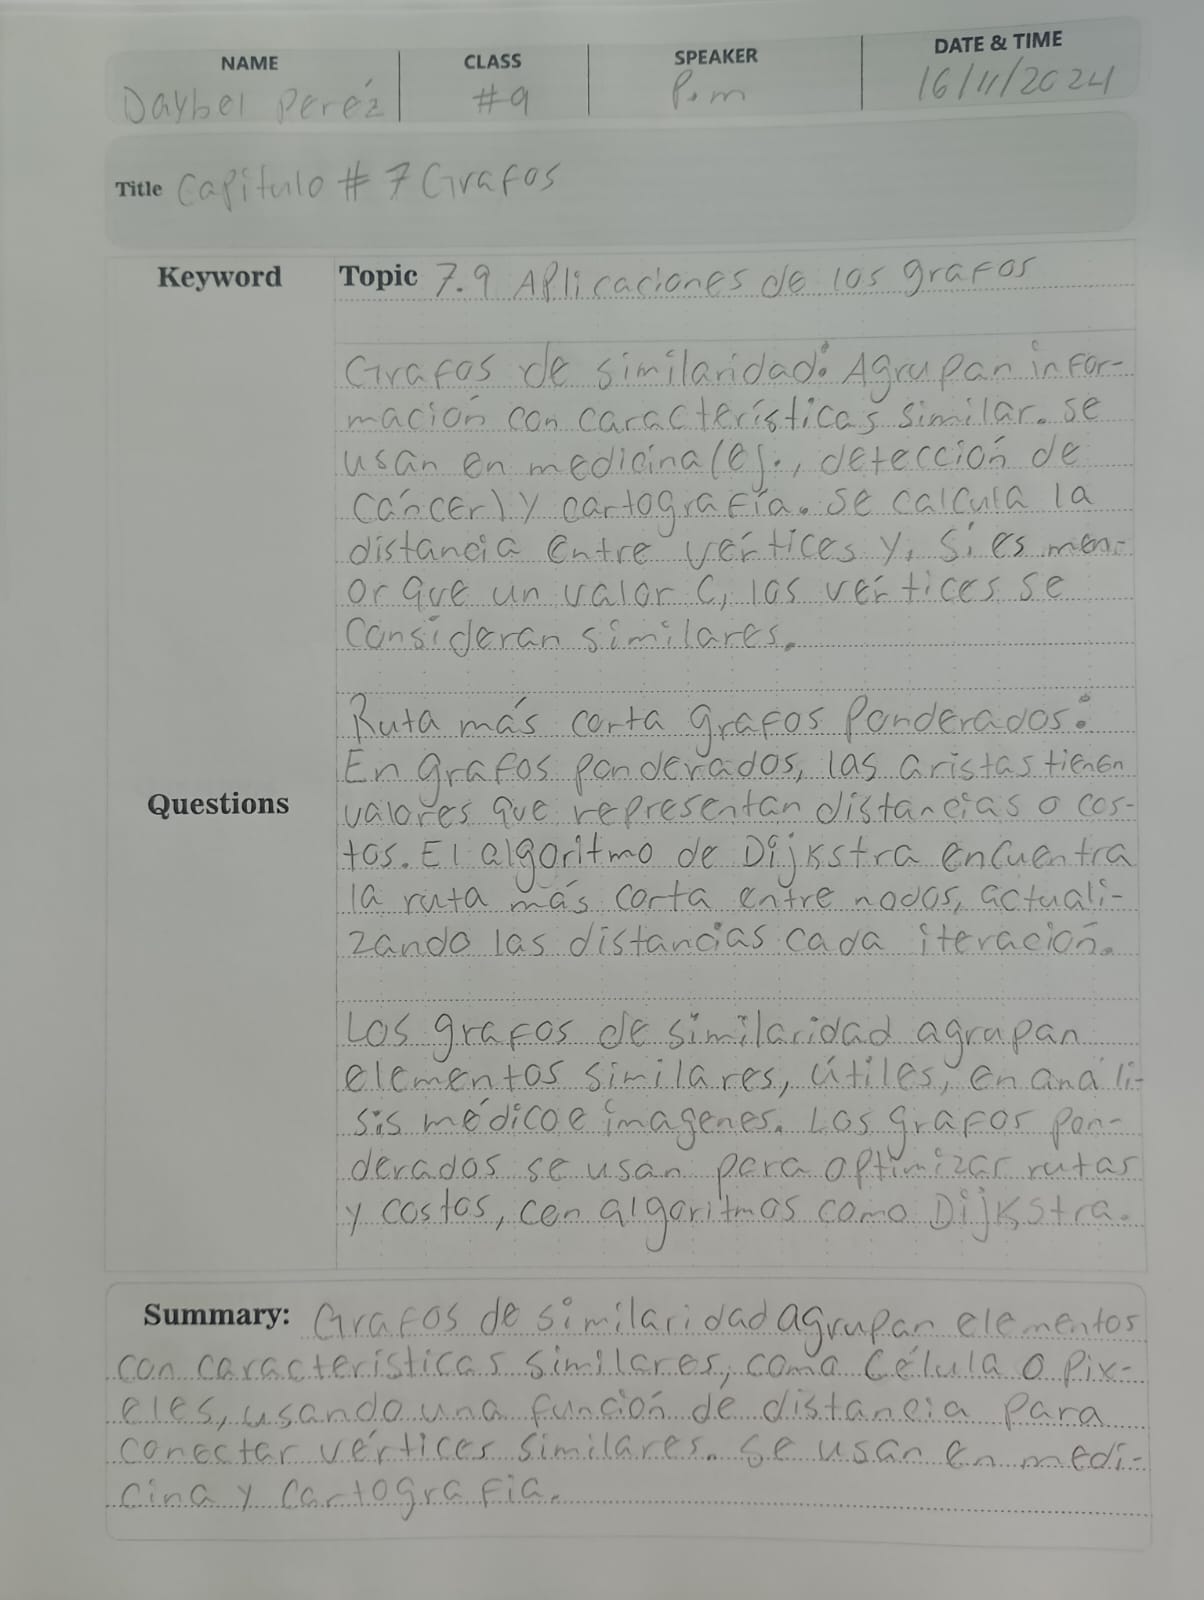 NAME CLASS SPEAKER DATE & TIME
Daybel Pereź #9 P.m 16/11/2024
Title Capitulo # 7 Grafos
Keyword Topic 7.9 Aplicaciones de los grafos
Grafos de similaridad: Agrupan infor-
mación con características similar. se
usan en medicina (ej., detección de
cáncer) y cartografía. se calcula la
distancia entre vértices y, si es men-
or que un valor C, los vértices se
consideran similares.
Ruta más corta grafos Ponderados:
En grafos ponderados, las aristas tienen
Questions
valores que representan distancias o cos-
tos. El algoritmo de Dijkstra encuentra
la ruta más corta entre nodos, actuali-
zando las distancias cada iteración.
Los grafos de similaridad agrupan
elementos similares, útiles, en análi-
sis médico e imagenes. Los grafos pon-
derados se usan para optimizar rutas
y costos, con algoritmos como Dijkstra.
Summary: Grafos de similaridad agrupan elementos
con características similares, como célula o pix-
eles, usando una función de distancia para
conectar vértices similares. se usan en medi-
cina y cartografia.